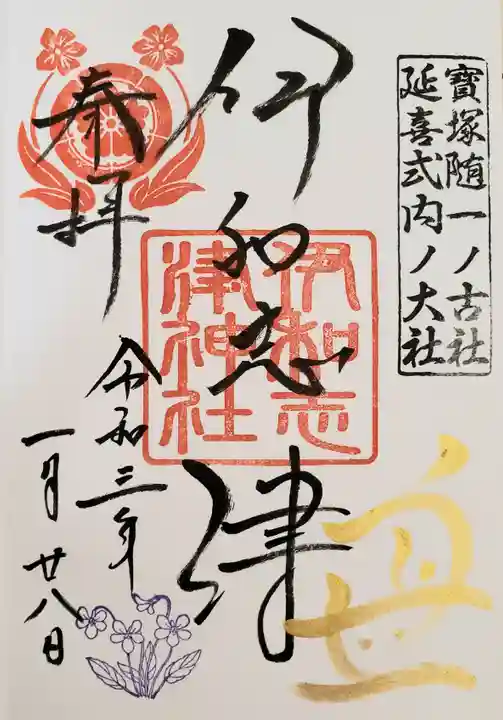 寶塚随一ノ古社
延喜式内ノ大社
伊和志津
伊和志
津神社
奉拝
令和三年
一月廿八日
丑